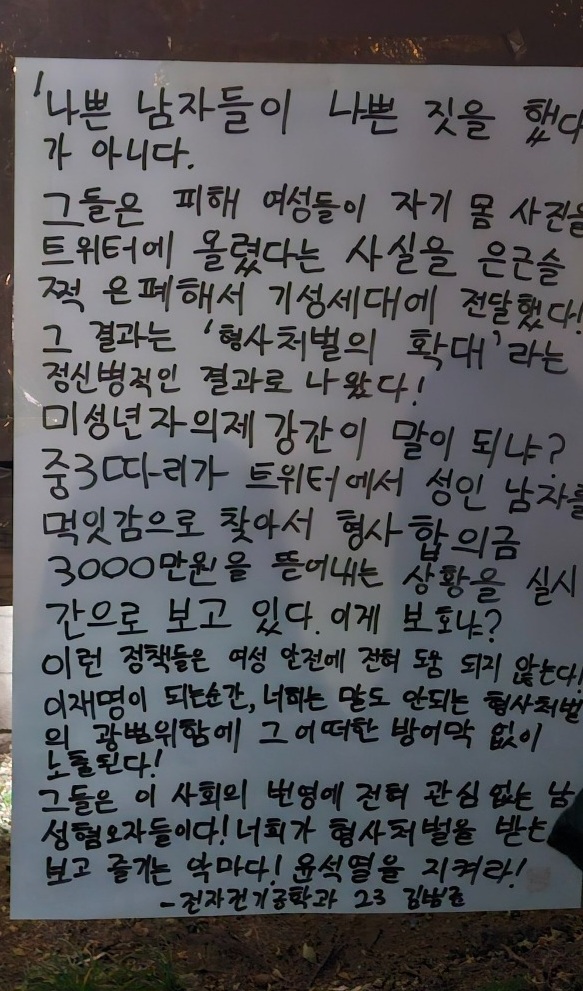 '나쁜 남자들이 나쁜 짓을 했다
가 아니다.
그들은 피해 여성들이 자기 몸 사진을
트위터에 올렸다는 사실을 은근슬
쩍 은폐해서 기성세대에 전달했다!
그 결과는 '형사처벌의 확대'라는
정신병적인 결과로 나왔다!
미성년자의제강간이 말이 되냐?
중3따리가 트위터에서 성인 남자를
먹잇감으로 찾아서 형사합의금
3000만원을 뜯어내는 상황을 실시
간으로 보고 있다. 이게 보호냐?
이런 정책들은 여성 안전에 전혀 도움 되지 않는다!
이재명이 되는순간, 너희는 말도 안되는 형사처벌
의 광범위함에 그 어떠한 방어막 없이
노출된다!
그들은 이 사회의 번영에 전혀 관심 없는 남
성혐오자들이다! 너희가 형사처벌을 받는
보고 즐기는 악마다! 윤석열을 지켜라!
-전자전기공학과 23